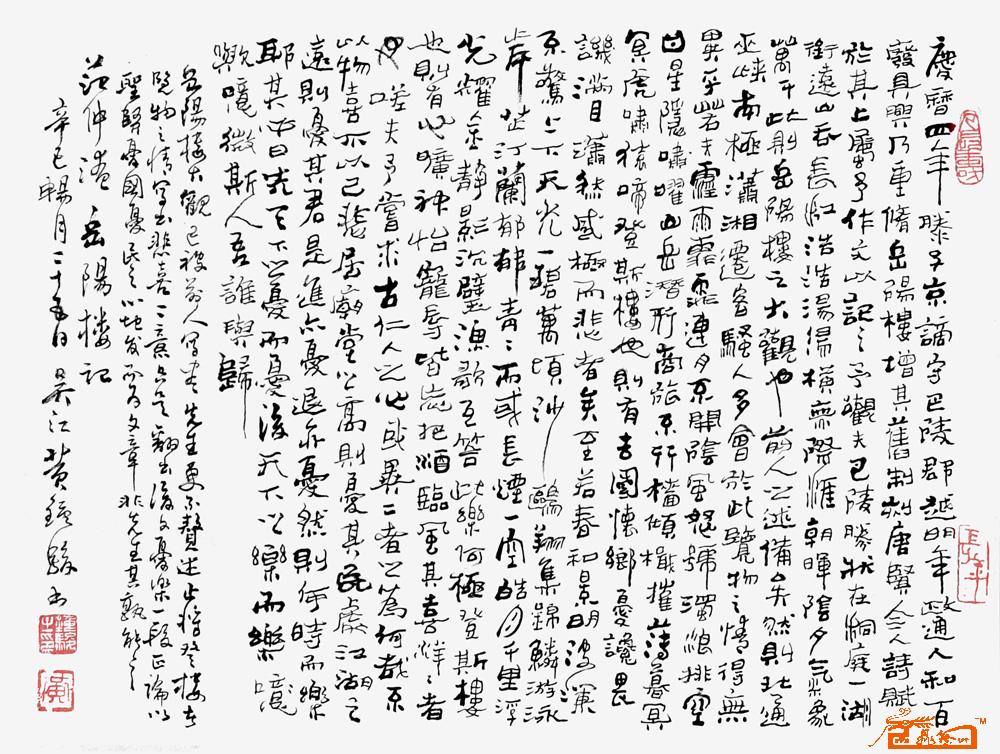 慶曆四年滕子京謫守巴陵郡越明年政通人和百
廢具興乃重脩岳陽樓增其舊制刻唐賢今人詩賦
於其上屬予作文以記之予觀夫巴陵勝狀在洞庭一湖
銜遠山吞長江浩浩湯湯橫無際涯朝暉陰夕氣象
萬千此則岳陽樓之大觀也前人之述備矣然則北通
巫峽南極瀟湘遷客騷人多會於此覽物之情得無
異乎若夫霪雨霏霏連月不開陰風怒號濁浪排空
日星隱嘯曜山岳潛形商旅不行檣傾檝摧薄暮冥
冥虎嘯猿啼登斯樓也則有去國懷鄉憂讒畏
譏滿目瀟然感極而悲者矣至若春和景明波瀾
不驚上下天光一碧萬頃沙鷗翔集錦鱗游泳
岸芷汀蘭郁郁青〻而或長煙一空皓月千里浮
光耀金靜影沉璧漁歌互答此樂何極登斯樓
也則有心曠神怡寵辱皆忘把酒臨風其喜洋〻者
矣嗟夫予嘗求古仁人之心或異二者之為何哉不
以物喜不以己悲居廟堂之高則憂其民處江湖之
遠則憂其君是進亦憂退亦憂然則何時而樂
耶其必曰先天下之憂而憂後天下之樂而樂噫
歟噫微斯人吾誰與歸
岳陽樓大觀已被前人寫盡先生更不贅述止將登樓者
覽物之情寫出悲喜二意只是翻出後文憂樂一段正論以
聖賢憂國憂民之心地發而為文章非先生其孰能之
范仲淹岳陽楼記
辛巳暢月二十五日吳江黃鐘駿书